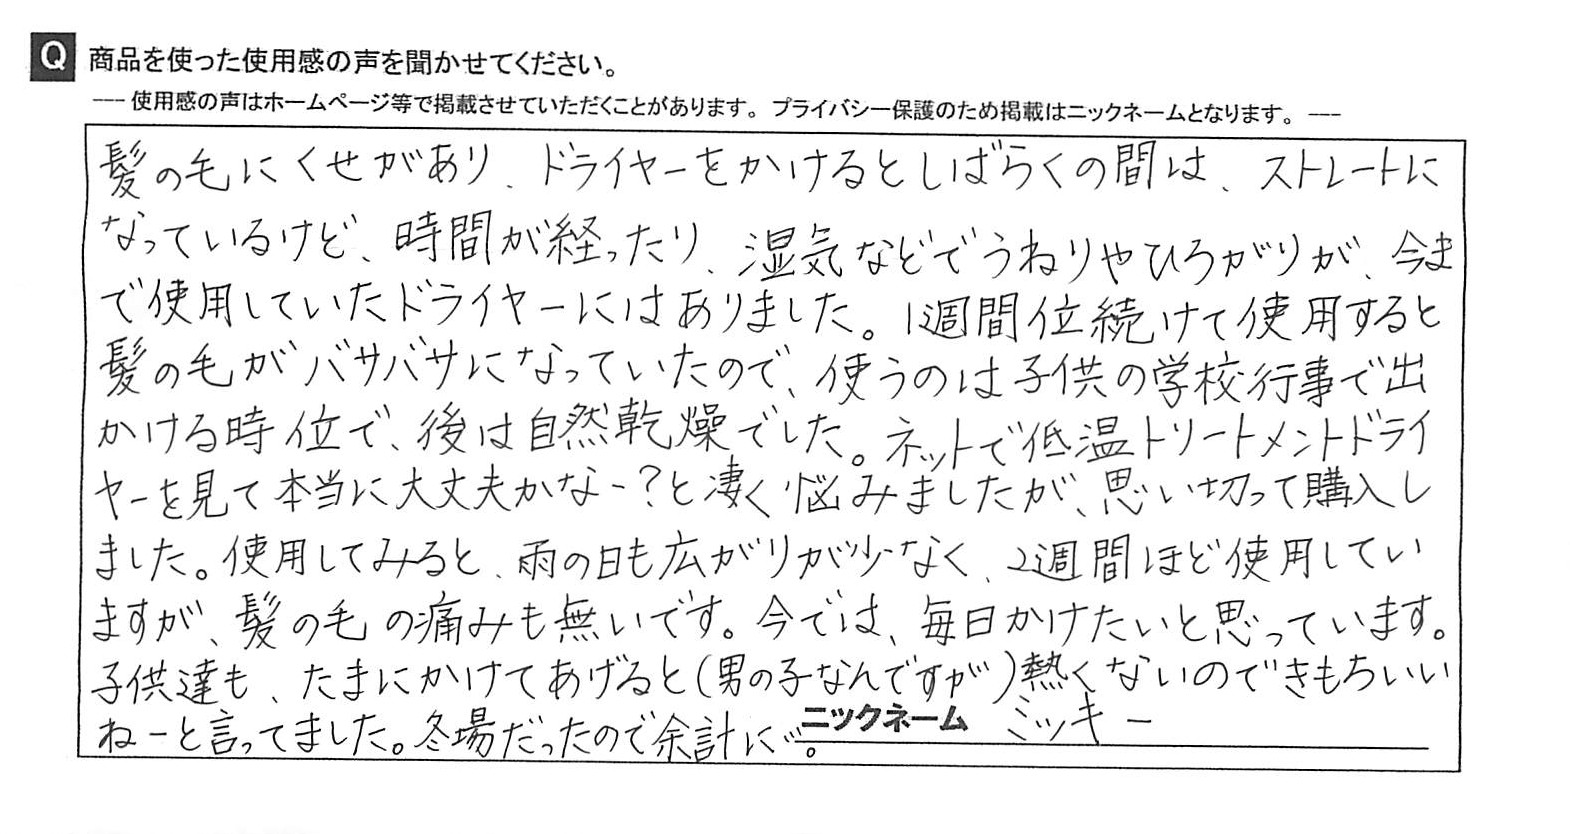 Q 商品を使った使用感の声を聞かせてください。
--- 使用感の声はホームページ等で掲載させていただくことがあります。プライバシー保護のため掲載はニックネームとなります。 ---
髪の毛にくせがあり、ドライヤーをかけるとしばらくの間は、ストレートに
なっているけど、時間が経ったり、湿気などでうねりやひろがりが、今ま
で使用していたドライヤーにはありました。1週間位続けて使用すると
髪の毛がバサバサになっていたので、使うのは子供の学校行事で出
かける時位で、後は自然乾燥でした。ネットで低温トリートメントドライ
ヤーを見て本当に大丈夫かなー?と凄く悩みましたが、思い切って購入し
ました。使用してみると、雨の日も広がりが少なく、2週間ほど使用してい
ますが、髪の毛の痛みも無いです。今では、毎日かけたいと思っています。
子供達も、たまにかけてあげると(男の子なんですが)熱くないのできもちいい
ねーと言ってました。冬場だったので余計に…。
ニックネーム ミッキー